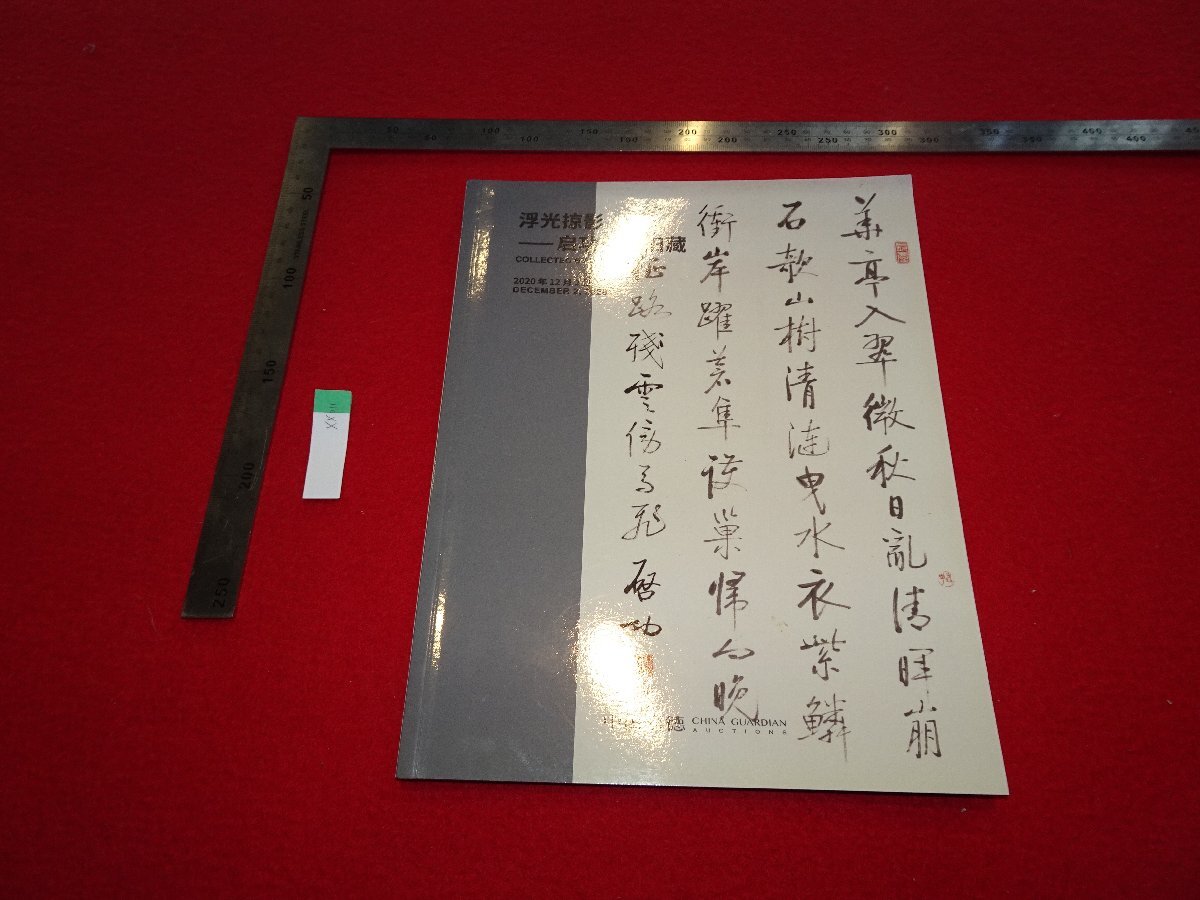 50 100 150 200 250 300 350 400
50 100 150 200 250 300 350 400
50
100
150
200
250
XX
浮光掠影
—— 启 旧藏
COLLECTED
2020 年 12 月
DECEMBER
華亭入翠微秋日亂清暉崩
石欹山樹清漣曳水衣紫鱗
衝岸躍蒼隼護巢歸向晚
征路殘雲傍馬飛 啓功
德 CHINA GUARDIAN
AUCTIONS